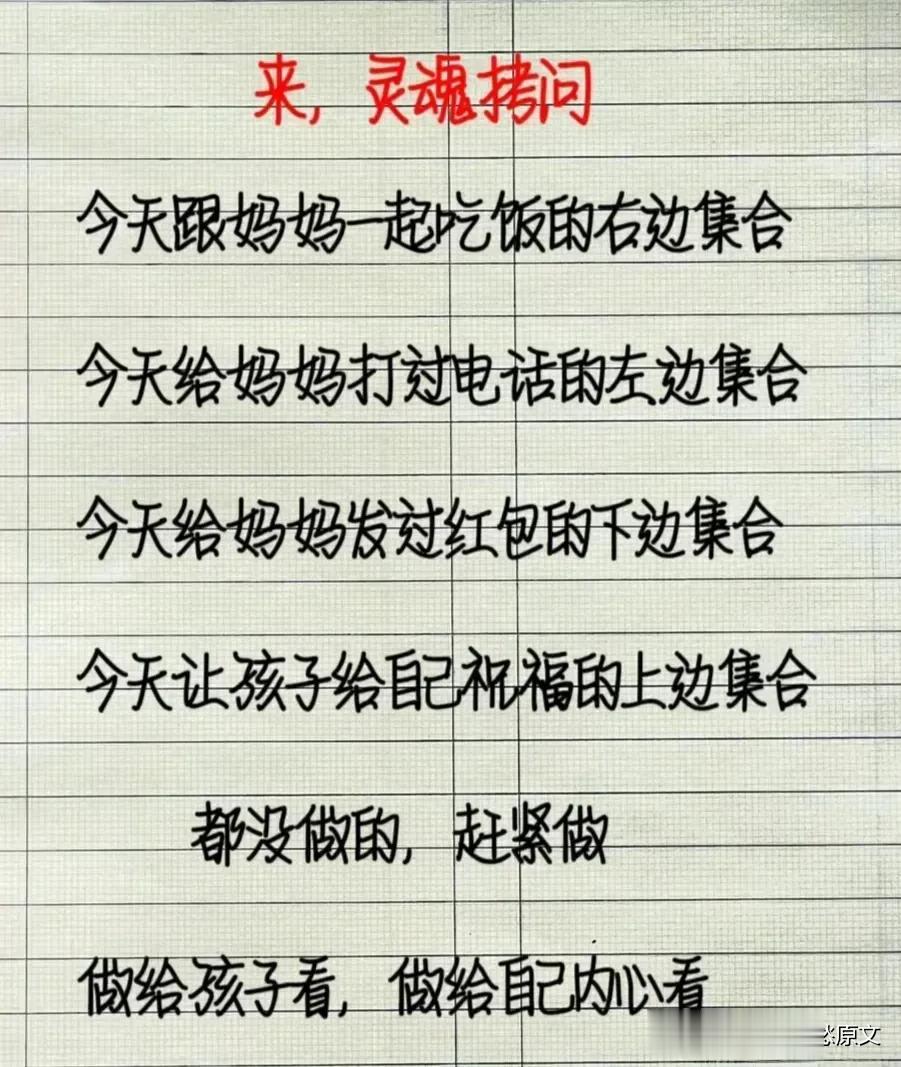 来，灵魂拷问
今天跟妈妈一起吃饭的右边集合
今天给妈妈打过电话的左边集合
今天给妈妈发过红包的下边集合
今天让孩子给自己祝福的上边集合
都没做的，赶紧做
做给孩子看，做给自己内心看
原文